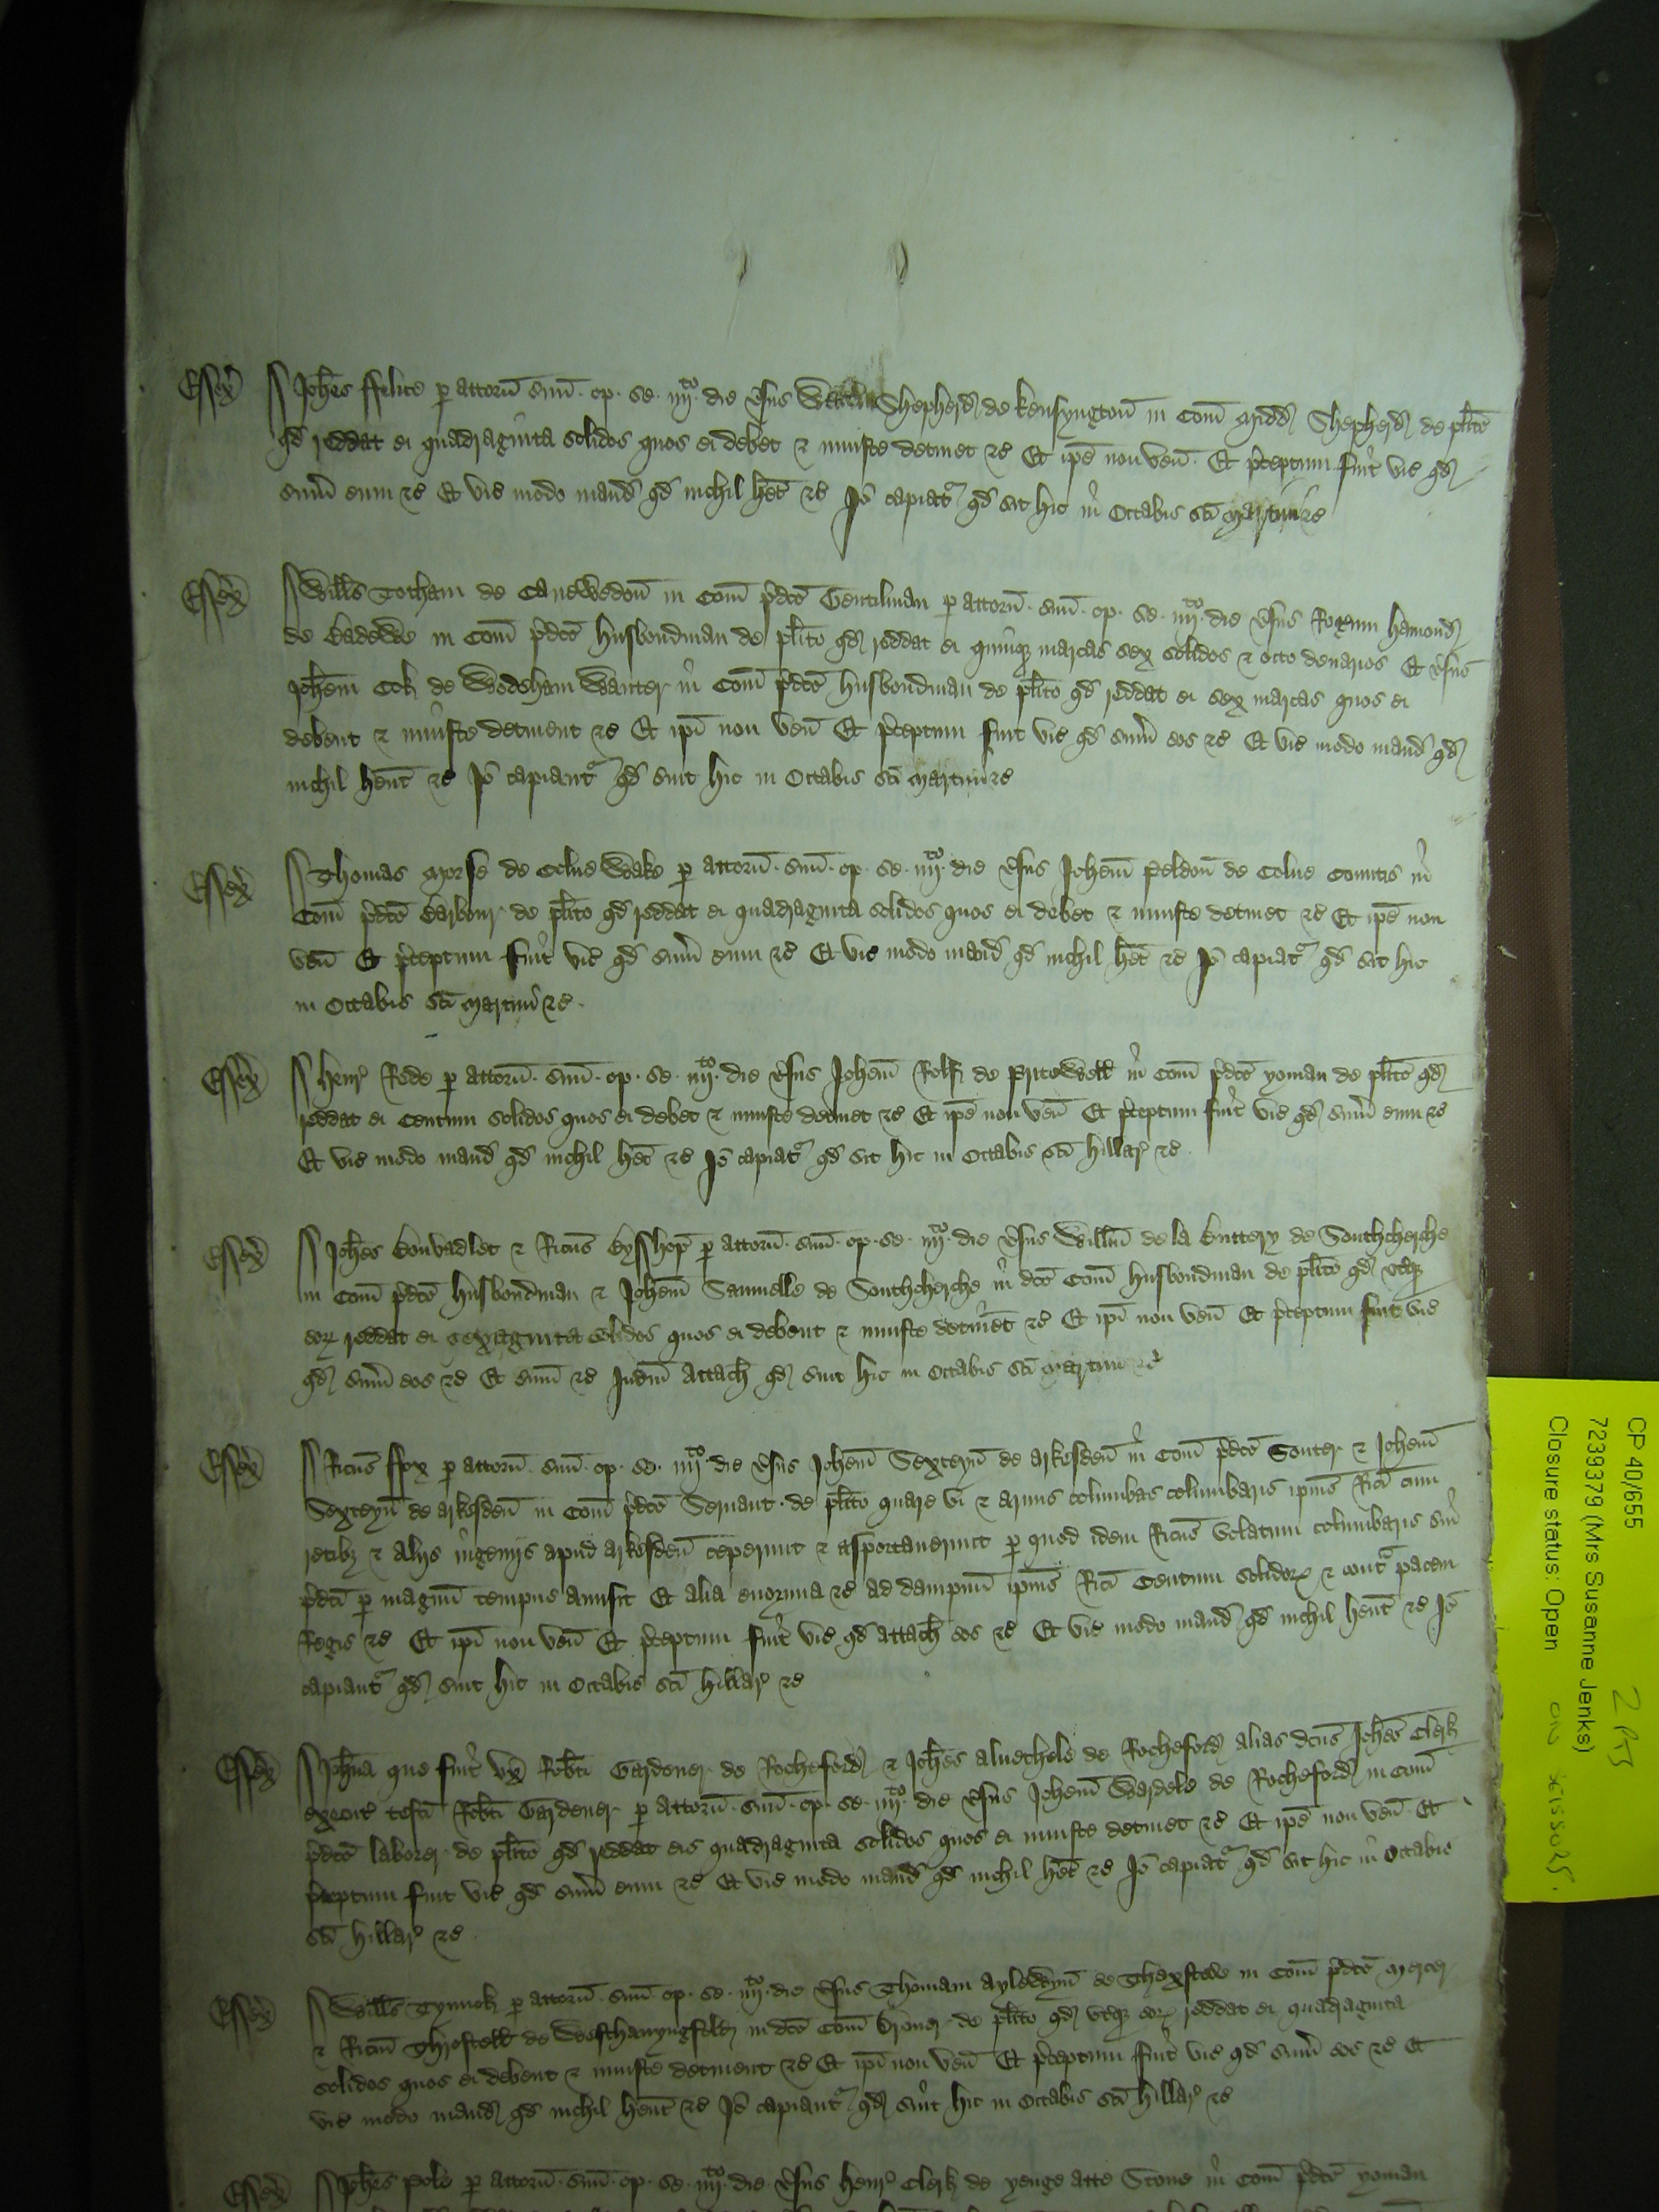 Essex Joh̄es ffelice p attorn̄ suū op se iiijto die v̄sus Shepherd de kensyngton̄ in Com̄ Midd Shepherd de pl̄ito
qd reddat ei quadraginta solidos quos ei debet & iniuste detinet &c Et ip̄e non ven̄ Et p̄ceptum fuit vic qd
sum̄ eum &c Et vic modo mand qd nichil h̄et &c Iō capiat̄ qd sit hic in Octabis sc̄i Martini &c
Essex Will̄s Totham de Canewedon̄ in Com̄ p̄dc̄o Gentilman p attorn̄ suū op se iiijto die v̄sus Roḡum hamond
de Badewe in Com̄ p̄dc̄o husbondman de pl̄ito qd reddat ei quinq marcas sex solidos & octo denarios Et v̄sus
Joh̄em Cok de Wodeham Wauter in Com̄ p̄dc̄o husbondman de pl̄ito qd reddat ei sex marcas quos ei
debent & iniuste detinent &c Et ip̄i non ven̄ Et p̄ceptum fuit vic qd sum̄ eos &c Et vic modo mand qd
nichil h̄ent &c Iō capiant̄ qd sint hic in Octabis sc̄i Martini &c
Essex Thomas Morse de Colne Wake p attorn̄ suū op se iiijto die v̄sus Joh̄em Peldon̄ de Colne Comitis in
Com̄ p̄dc̄o Barbour de pl̄ito qd reddat ei quadraginta solidos quos ei debet & iniuste detinet &c Et ip̄e non
ven̄ Et p̄ceptum fuit vic qd sum̄ eum &c Et vic modo mand qd nichil h̄et &c Iō capiat̄ qd sit hic
in Octabis sc̄i Martini &c
Essex Henr Rede p attorn̄ suū op se iiijto die v̄sus Joh̄em Rolf de Pritewell in Com̄ p̄dc̄o yoman de pl̄ito qd
reddat ei Centum solidos quos ei debet & iniuste detinet &c Et ip̄e non ven̄ Et p̄ceptum fuit vic qd sum̄ eum &c
Et vic modo mand qd nichil h̄et &c Iō capiat̄ qd sit hic in Octabis sc̄i Hillar &c
Essex Joh̄es Bonvadlet & Ric̄us Bysshop p attorn̄ suū op se iiijto die v̄sus Will̄m de la Buttery de Southcherche
in Com̄ p̄dc̄o husbondman & Joh̄em Samuelle de Southcherche in dc̄o Com̄ husbondman de pl̄ito qd utq
eor reddat ei sexaginta solidos quos ei debent & iniuste detinet &c Et ip̄i non ven̄ Et p̄ceptum fuit vic
qd sum̄ eos &c Et sum̄ &c Iudm̄ Attach qd sint hic in Octabis sc̄i Martini &c
Essex Ric̄us ffox p attorn̄ suū op se iiijto die v̄sus Joh̄em Sexteyn̄ de Arkesden̄ in Com̄ p̄dc̄o Souter & Joh̄em
Sexteyn̄ de Arkesden̄ in Com̄ p̄dc̄o Seruant de pl̄ito quare vi & armis columbas columbaris ip̄ius Ric̄i cum
retib & alijs ingenijs apud Arkesden̄ ceperunt & asportauerunt p quod idem Ric̄us volatum columbaris sui
p̄dc̄i p magnū tempus amisit Et alia enormia &c ad dampnū ip̄ius Ric̄i Centum solidor & cont̄ pacem
Regis &c Et ip̄i non ven̄ Et p̄ceptum fuit vic qd attach eos &c Et vic modo mand qd nichil h̄ent &c Iō
capiant̄ qd sint hic in Octabis sc̄i Hillar &c
Essex Joh̄na que fuit ux̄ Rob̄ti Gardener de Rocheford & Joh̄es Aluethele de Rocheford alias dc̄us Joh̄es Clerk
execut̄ testi Rob̄ti Gardener p attorn̄ suū op se iiijto die v̄sus Joh̄em Wardele de Rocheford in Com̄
p̄dc̄o laborer de pl̄ito qd reddat eis quadraginta solidos quos ei iniuste detinet &c Et ip̄e non ven̄ Et
p̄ceptum fuit vic qd sum̄ eum &c Et vic modo mand qd nichil h̄et &c Iō capiat̄ qd sit hic in Octabis
sc̄i Hillar &c
Essex Will̄s Tynnok p attorn̄ suū op se iiijto die v̄sus Thomam Aylewyn̄ de Thaxstede in Com̄ p̄dc̄o Mercer
& Ric̄m Throstell de Westhanyngfeld in dc̄o Com̄ de pl̄ito qd utq eor reddat ei quadraginta
solidos quos ei debent & iniuste detinent &c Et ip̄i non ven̄ Et p̄ceptum fuit vic qd sum̄ eos &c Et
vic modo mand qd nichil h̄ent &c Iō capiant̄ qd sint hic in Octabis sc̄i Hillar &c
Essex Joh̄es Pole p attorn̄ suū op se iiijto die v̄sus Henr Clerk de yenge atte Stone in Com̄ p̄dc̄o yoman
CP 40/655
7239379 (Mrs Susanne Jenks)
Closure status: Open